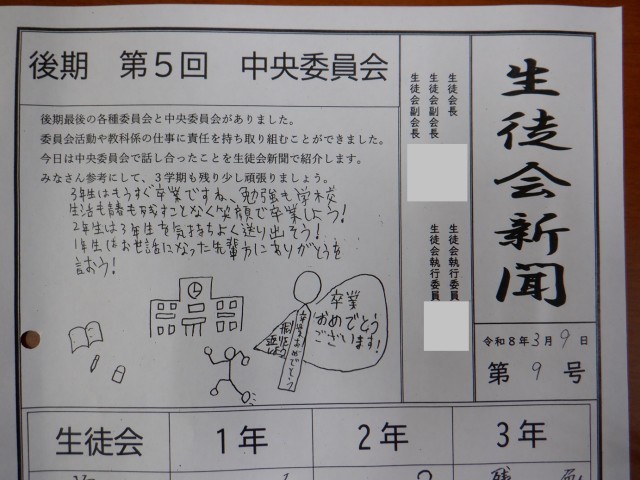 生徒会新聞
令和8年3月9日
第9号
生徒会長
生徒会副会長
生徒会副会長
生徒会執行委員
生徒会執行委員
後期 第5回 中央委員会
後期最後の各種委員会と中央委員会がありました。
委員会活動や教科係の仕事に責任を持ち取り組むことができました。
今日は中央委員会で話し合ったことを生徒会新聞で紹介します。
みなさん参考にして、3学期も残り少し頑張りましょう。
3年生はもうすぐ卒業ですね、勉強も学校
生活も諸も残すことなく笑顔で卒業しよう!
2年生は3年生を気持ちよく送り出そう!
1年生はお世話になった先輩方にありがとうを
言おう!
卒業
おめでとう
ござい
ます!
卒業おめでとう
生徒会 1年 2年 3年